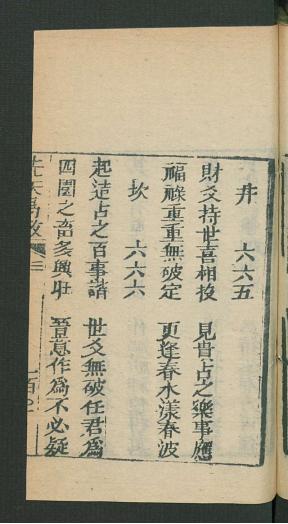 井　六六五
財爻持世喜相投　見貴占之樂事應
福祿重重無破定　更逢春水漾春波
坎　六六六
起造占之百事諧　世爻無破任君爲
四圍之畜多興壯　吾意作爲不必疑